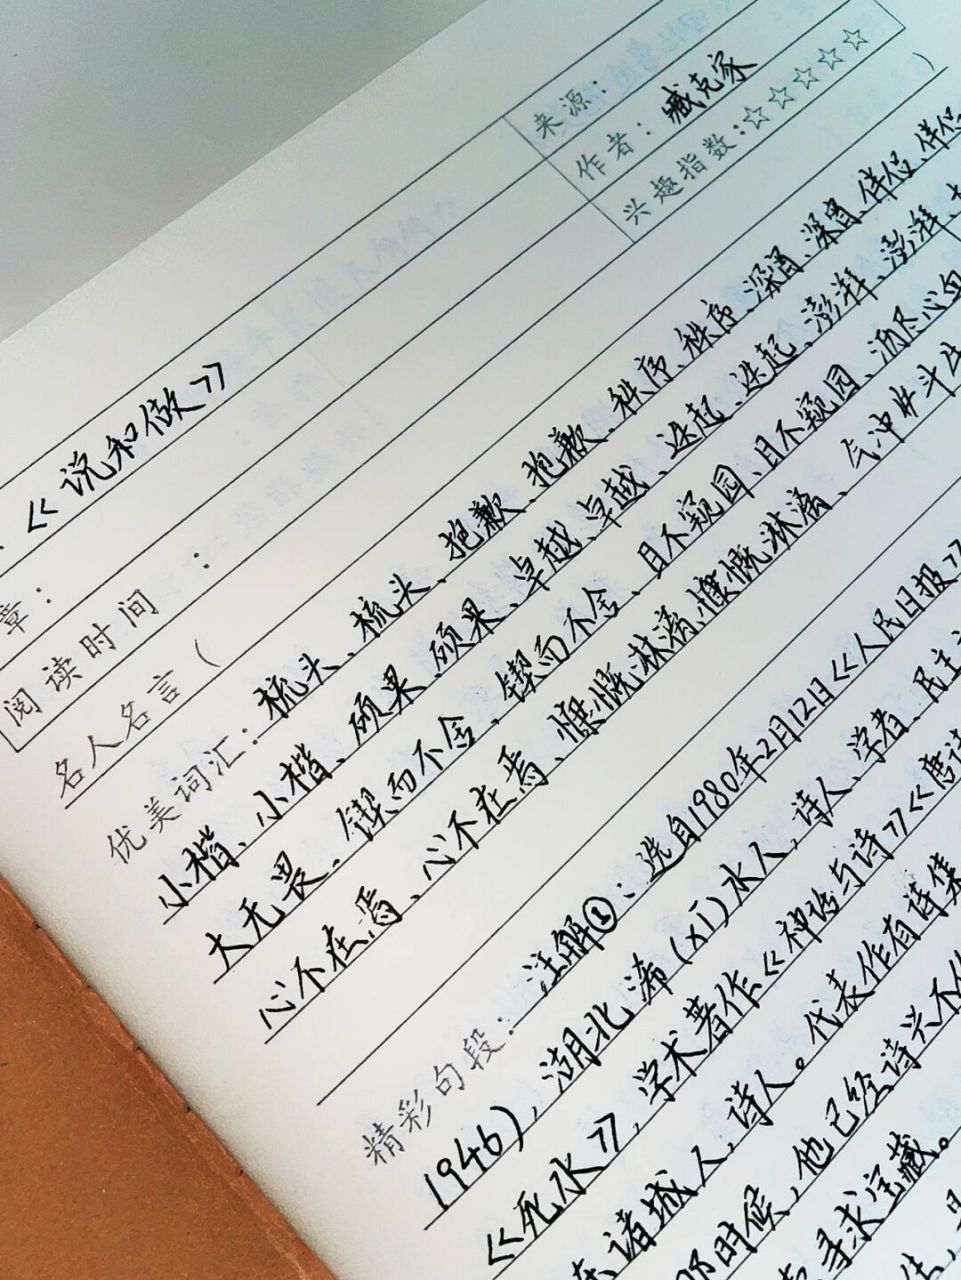 来源:
作者: 臧克家
兴趣指数:☆☆☆☆☆
《说和做》
章:
阅读时间:
名人名言( )
优美词汇: 梳头、梳头、抱歉、抱歉、秩序、秩序、深宵、深宵、伴侣、伴侣
小楷、小楷、硕果、硕果、卓越、卓越、迭起、迭起、澎湃、澎湃、
大无畏、锲而不舍、锲而不舍、目不窥园、目不窥园、沥尽心血
心不在焉、心不在焉、慷慨淋漓、慷慨淋漓、气冲斗牛
精彩句段: 注解①:选自1980年2月12日《人民日报》
1946),湖北浠(xī)水人,诗人、学者、民主
《死水》,学术著作《神话与诗》《唐诗
诸城人,诗人。代表作有诗集
那时候,他已经诗兴不
寻求宝藏。